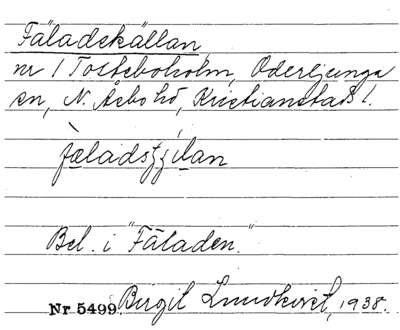 Fäladskällan
nr 1 Tosteboholm, Oderljunga
sn, N. Åsbo hd, Kristianstads l.
Bel. i "Fäladen."
Nr 5499. Birgit Lundkvist, 1938.